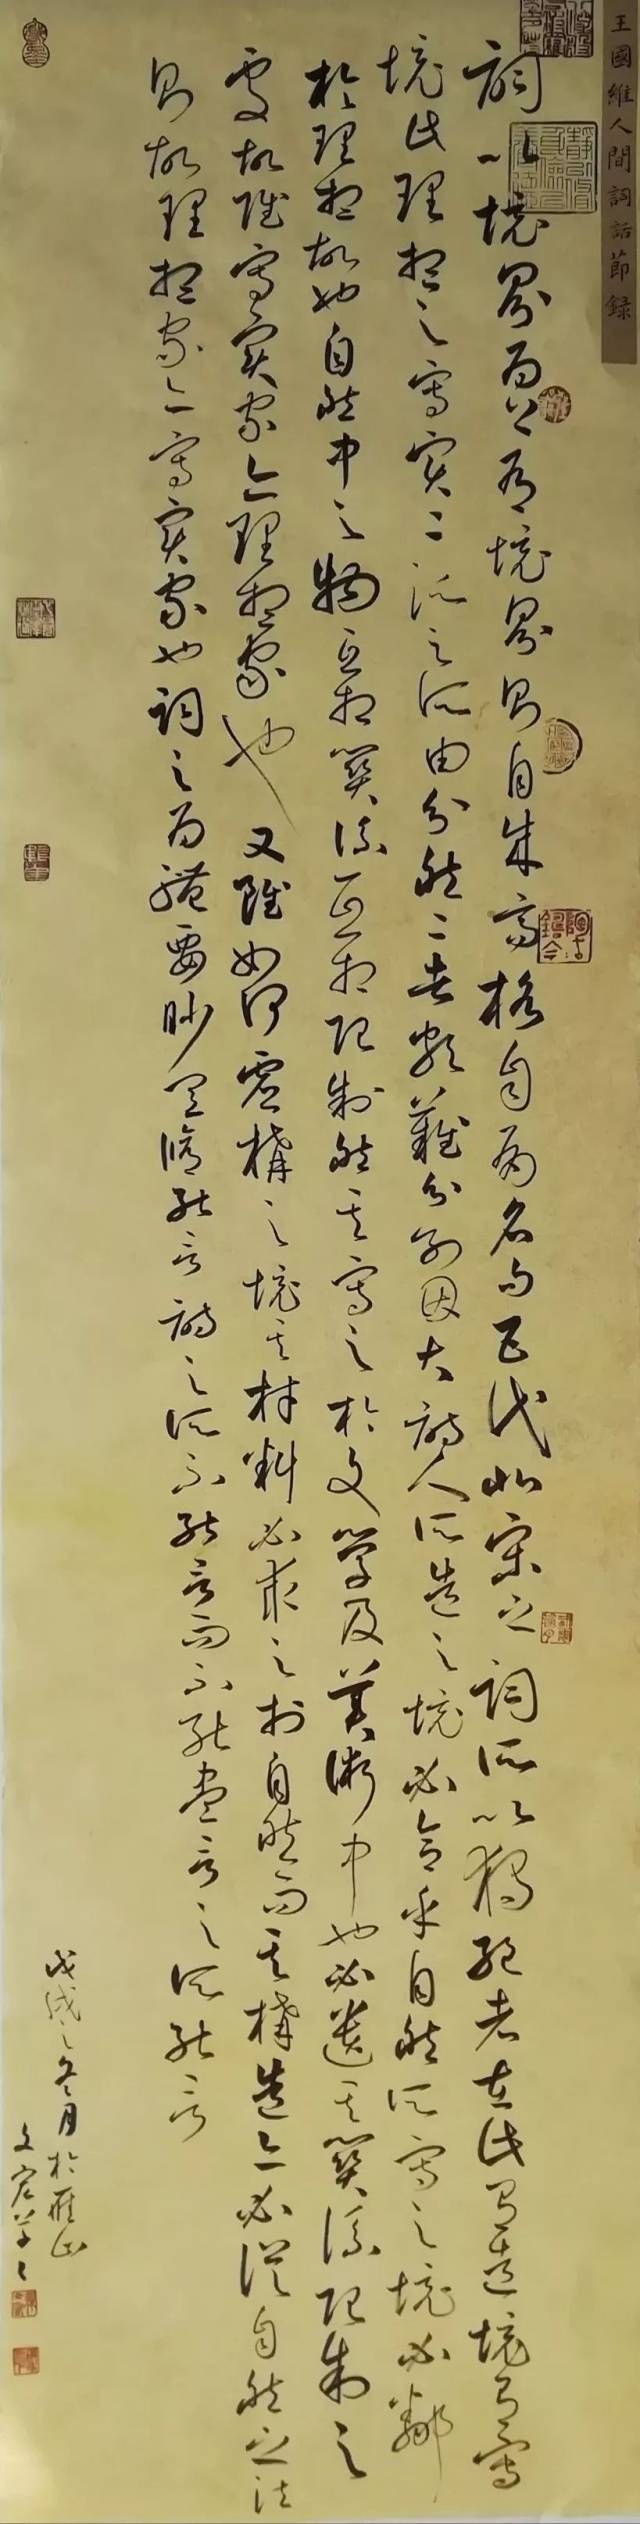 王國維人間詞話節録
詞以境界為上有境界則自成高格自有名句五代北宋之詞所以獨絕者在此有造境有寫
境此理想之寫實二派之所由分然二者頗難分別因大詩人所造之境必合乎自然所寫之境必鄰
於理想故也自然中之物互相關係互相限制然其寫之於文學及美術中也必遺其關係限制之
處故雖寫實家亦理想家也又雖如何虛構之境其材料必求之於自然而其構造亦必從自然之法
則故理想家亦寫實家也詞之為體要眇宜修能言詩之所不能言而不能盡言之所能言
戊戌之冬月於雁山
文宏草之